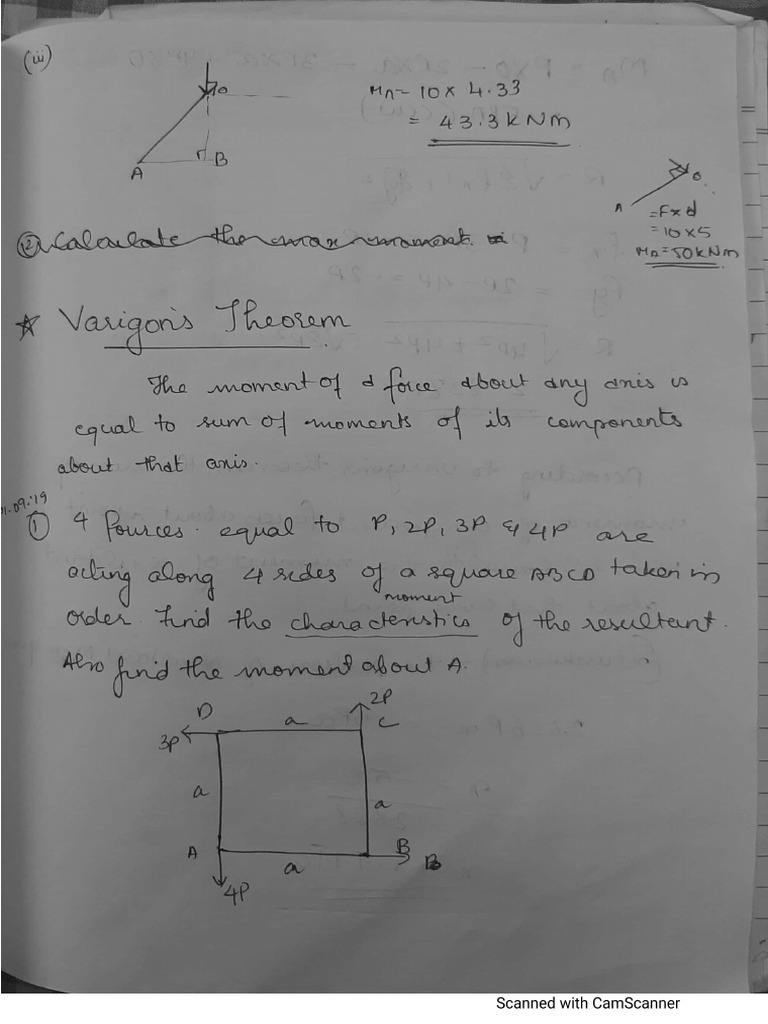 (iii)
O
A
B
MA = 10 x 4.33
= 43.3 kNm
A
O
= F x d
= 10 x 5
MA = 50 kNm
② Calculate the max moment.
☆ Varigon's Theorem
The moment of a force about any axis is
equal to sum of moments of its components
about that axis.
.09.'19
① 4 Fources equal to P, 2P, 3P & 4P are
acting along 4 sides of a square ABCD taken in
moment
order. Find the characteristics of the resultant.
Also find the moment about A.
D
a
2P
C
3P
a
a
A
a
B
B
4P
Scanned with CamScanner